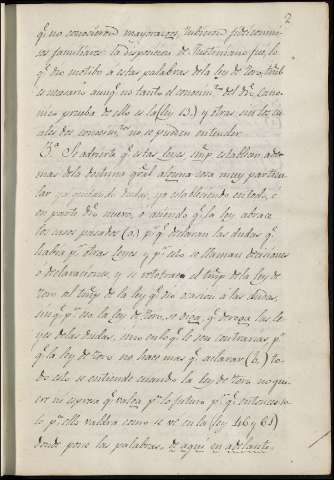 2
q.e no conocieron mayorazgos, tubieron fideicomi-
sos familiares la disposicion de Justiniano fue lo
q.e dio motibo a estas palabras de la ley de Toro, tamb.
es necesario aunq.e no tanto el conocim.to del dro. Cano-
nico prueba de ello es la (ley 13.) y otras, sin los cu
ales dos conocim.tos no se pueden entender.
3.o Se advierte q.e estas leyes siemp. establecen ade-
mas de la doctrina gral alguna cosa muy particu
lar ya quitando dudas, ya estableciendo en todo, o
en parte dro nuevo, o uniendo q.e la ley abrace
los casos pasados (a.) p.r q.e declaran las dudas q.e
habia p.r otras leyes y p.r esto se llaman decisiones
o declaraciones, y se retrotrae el tiemp. de la ley de
Toro al tiemp. de la ley q.e dio ocasion a las dudas,
sin q.e p.r la ley de Toro, se diga, q.e deroga las le
yes de las dudas, sino en lo q.e le son contrarias p.r
q.e la ley de Toro no hace mas q.e aclarar (b.) to-
do esto se entiende cuando la ley de Toro no qui-
ere ni espresa q.e valga p.a lo futuro p.r q.e entonces so
lo p.a ello valdra como se ve en la (ley 46 y 61)
donde pone las palabras, de aqui en adelante.